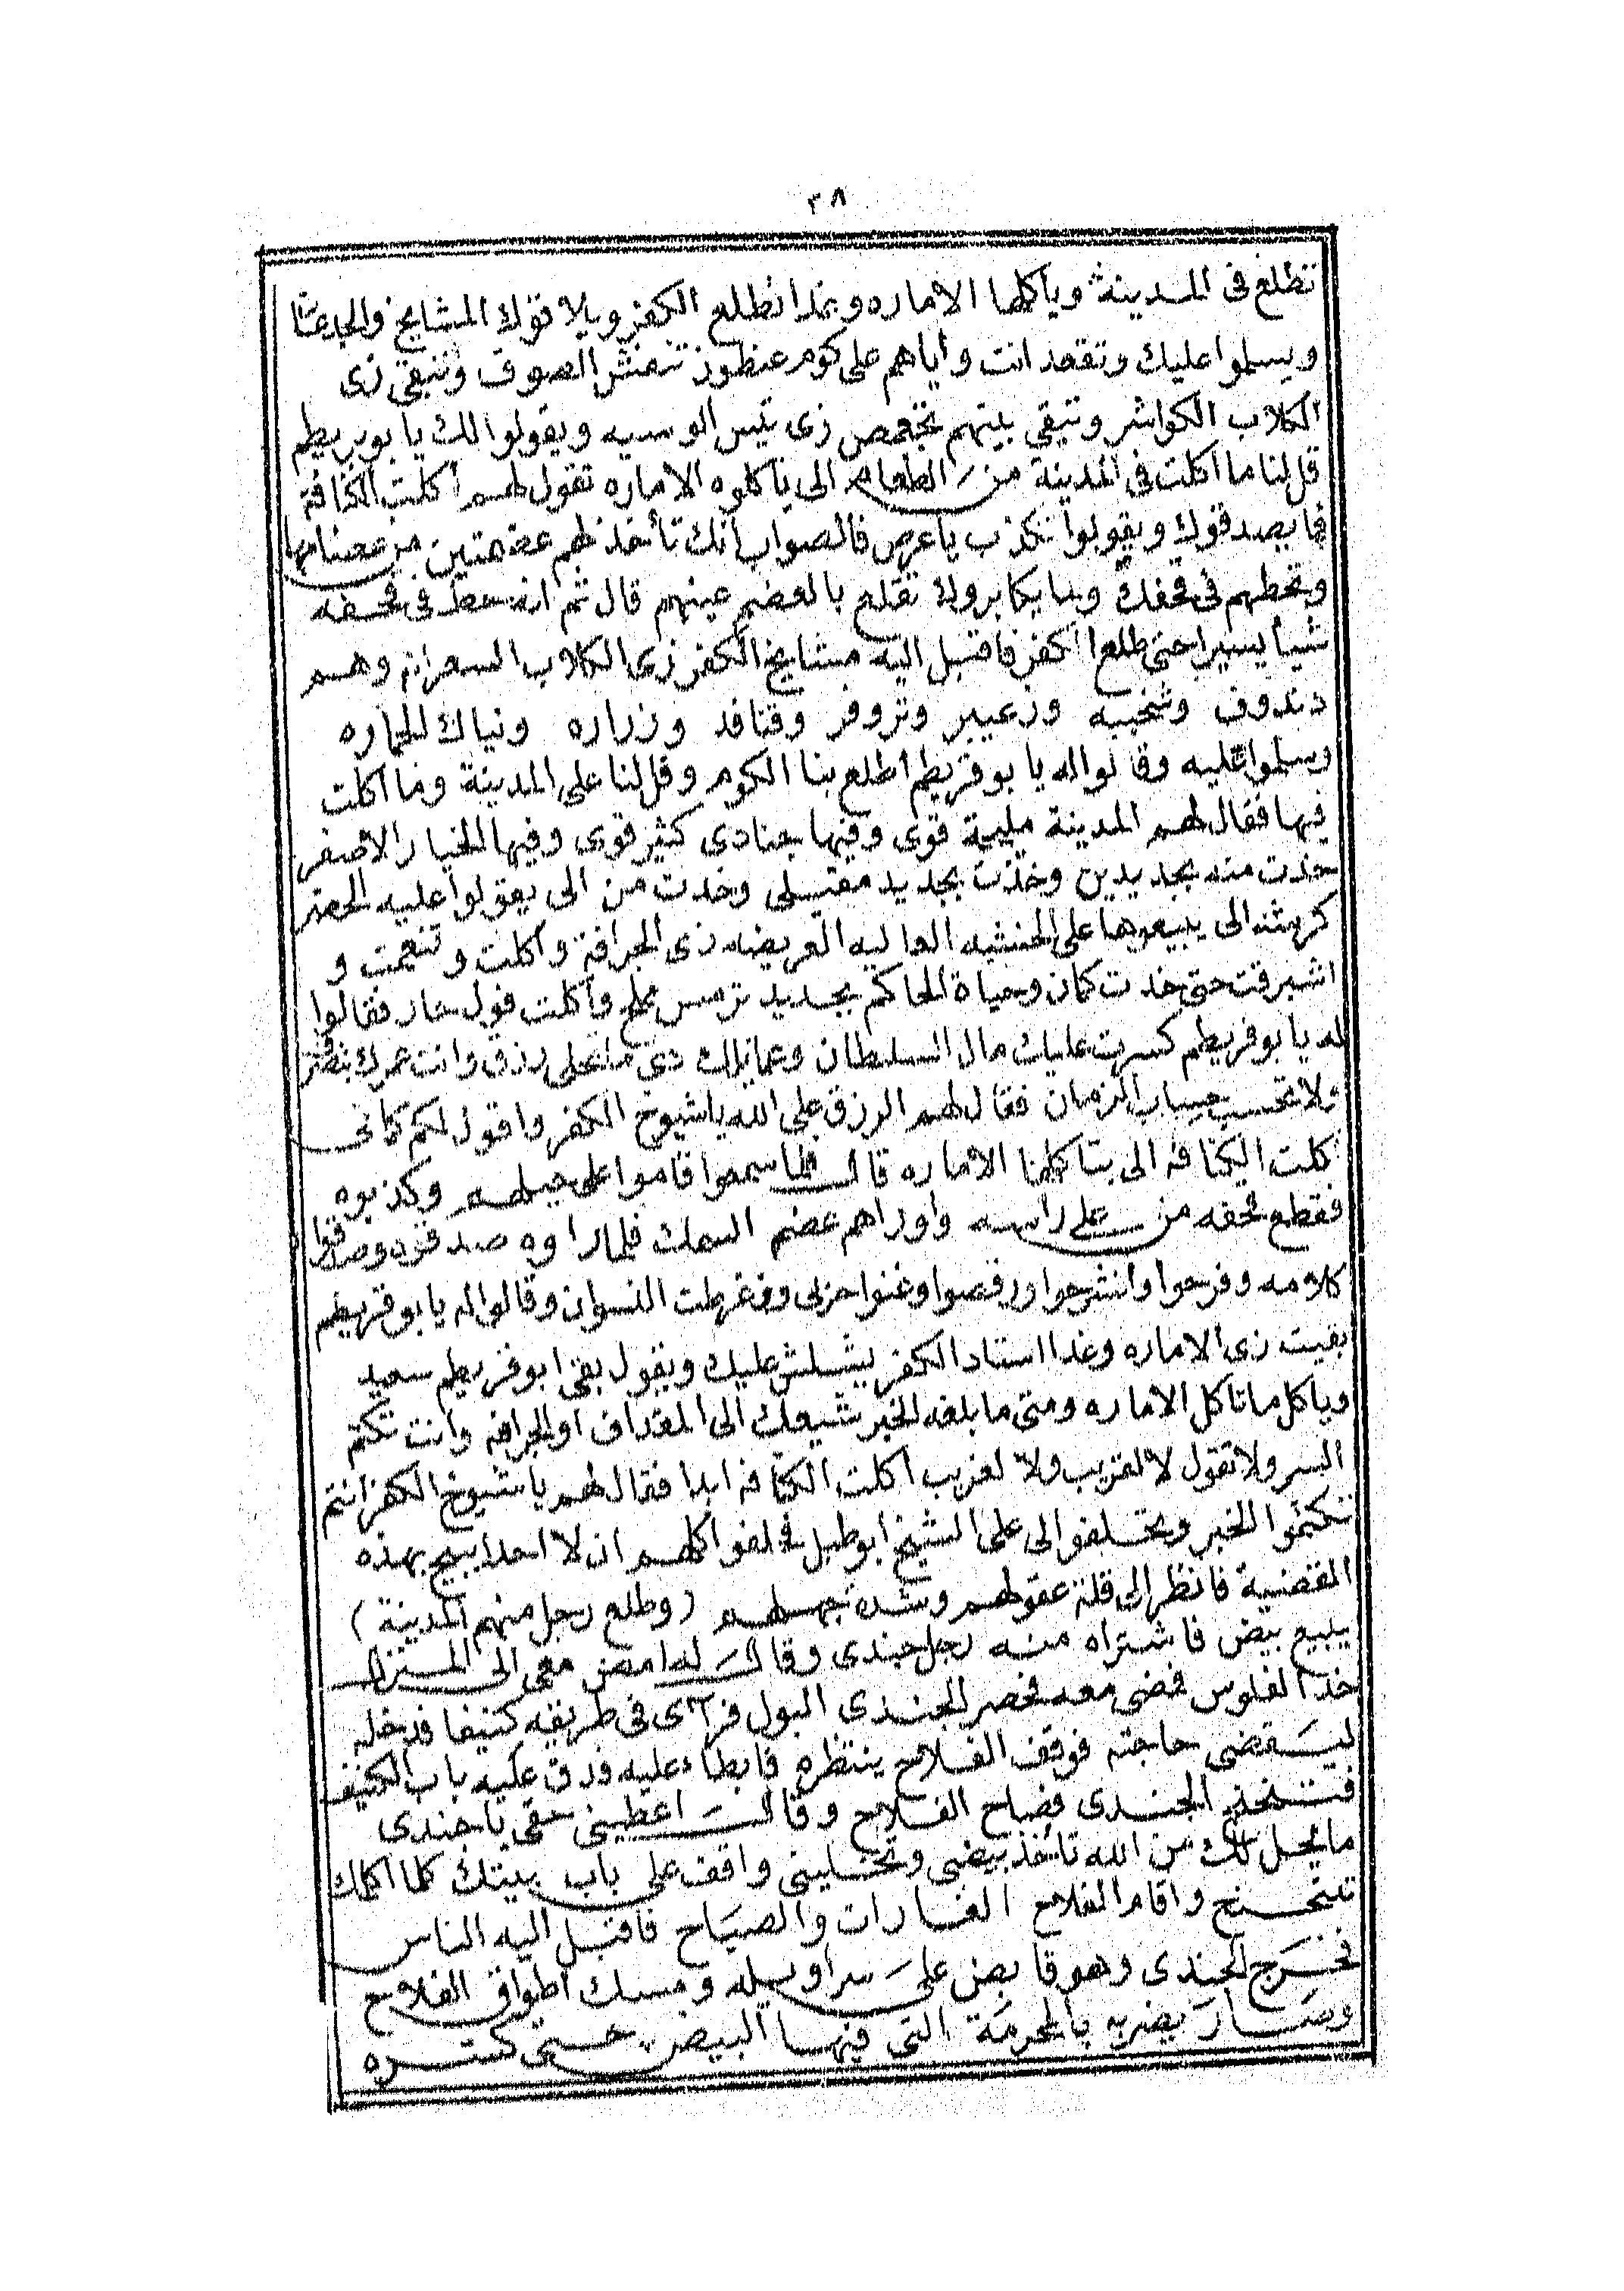 ٣٨
تطلع فى المدينة وياكلها الاماره وغدا نطلع الكفر ويلاقوك المشايخ والجدعان
ويسلموا عليك وتقعد انت واياهم على كوم عنطوز تنمش الصوف وتبقى زى
الكلاب الكواشر وتبقى بينهم تتقمص زى تيس الوسيه ويقولوا لك يابو بريطم
قل لنا ما اكلت فى المدينة من الطعام الى ياكلوه الاماره تقول لهم اكلت الكنافة
فما يصدقوك ويقولوا تكذب يا عرص فالصواب انك تأخذ لهم عضمتين من عضامها
وتحطهم فى قحفك وما يكابروك تقلع بالعضم عينهم قال ثم انه حط فى قحفه
شيأ يسيرا حتى طلعوا الكفر فاقبل اليه مشايخ الكفر زى الكلاب السعرانه وهم
دندوف وشخيبه وزعيبر وتزوفر وقنافد وزراره ونياك الحماره
وسلموا عليه وقالوا له يا بو قريطم اطلع بنا الكوم وقل لنا على المدينة وما اكلت
فيها فقال لهم المدينة مليحة قوى وفيها جنادى كثير قوى وفيها الخيار الاصفر
خدت منه بجديدين وخدت بجديد مقيلى وخدت من الى يقولوا عليه الحصر
كرشته الى يبيعوها على الخشبه العاليه العريضه زى الجرافة واكلت وتنعمت و
اشبرقت حتى خدت كمان وحياة الحاكم بجديد ترمس بملح واكلت فول حار فقالوا
له يا بو قريطم كسرت عليك مال السلطان وعمايلك دى ما تخلى رزق وانت عمرك بنصر
ولا تحسب حساب الزمان فقال لهم الرزق على الله يا شيوخ الكفر واقول لكم كمانى
كلت الكنافه الى بتاكلها الاماره قال فلما سمعوا قاموا على حيلهم وكذبوه
فقطع قحفه من على رأسه واوراهم عضم السمك فلما راوه صدقوه وصدقوا
كلامه وفرحوا وانشرحوا ورقصوا وغنوا حزنى وزغرطت النسوان وقالوا له يا بو قريطم
بقيت زى الاماره وغدا استاد الكفر يشلش عليك ويقول بقى ابو قريطم سعيد
وياكل ما تاكل الاماره ومتى ما بلغه الخبر شيعك الى المقداف او الجرافه وانت تكتم
السر ولا تقول لا لقريب ولا لغريب اكلت الكنافه ابدا فقال لهم يا شيوخ الكفر انتم
تكتموا الخبر وتحلفوا لى على الشيخ ابو طبل فحلفوا كلهم ان لا احدا يبيح بهذه
القضية فانظر الى قلة عقولهم وشدة جهلهم (وطلع رجل منهم المدينة)
يبيع بيض فاشتراه منه رجل جندى وقال له امض معى الى المنزل
خذ الفلوس فمضى معه فحصر الجندى البول فرآى فى طريقه كنيفا فدخله
ليقضى حاجته فوقف الفلاح ينتظره فابطاء عليه فدق عليه باب الكنيف
فتنحنح الجندى فصاح الفلاح وقال اعطينى حقى يا جندى
ما يحل لك من الله تاخذ بيضى وتخلينى واقف على باب بيتك كلما اكلمك
تتنحنح واقام الفلاح الغارات والصياح فاقبل اليه الناس
فخرج الجندى وهو قابض على سراويله ومسك اطواق الفلاح
وصار يضربه بالمحرمة التى فيها البيض حتى كسره